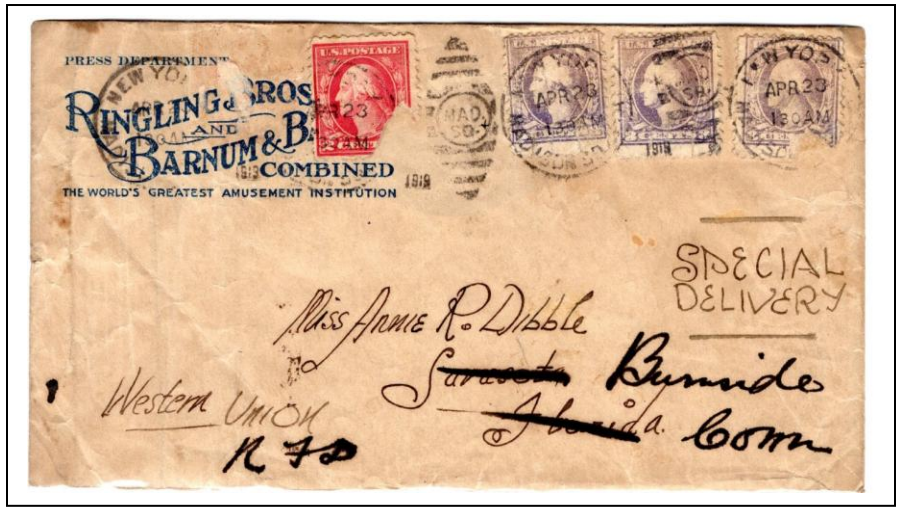 PRESS DEPARTMENT
RINGLING BROS
AND
BARNUM & BA
COMBINED
THE WORLD'S GREATEST AMUSEMENT INSTITUTION
U.S. POSTAGE
NEW YO
23
1919
1919
MAD.
SQ.
NEW YO
APR 23
1 30 AM
MADISON SQ.
1919
NEW YO
APR 23
1 30 AM
SPECIAL
DELIVERY
Miss Annie R. Dibble
Sarasota Burnside
Florida. Conn
Western Union
RFD